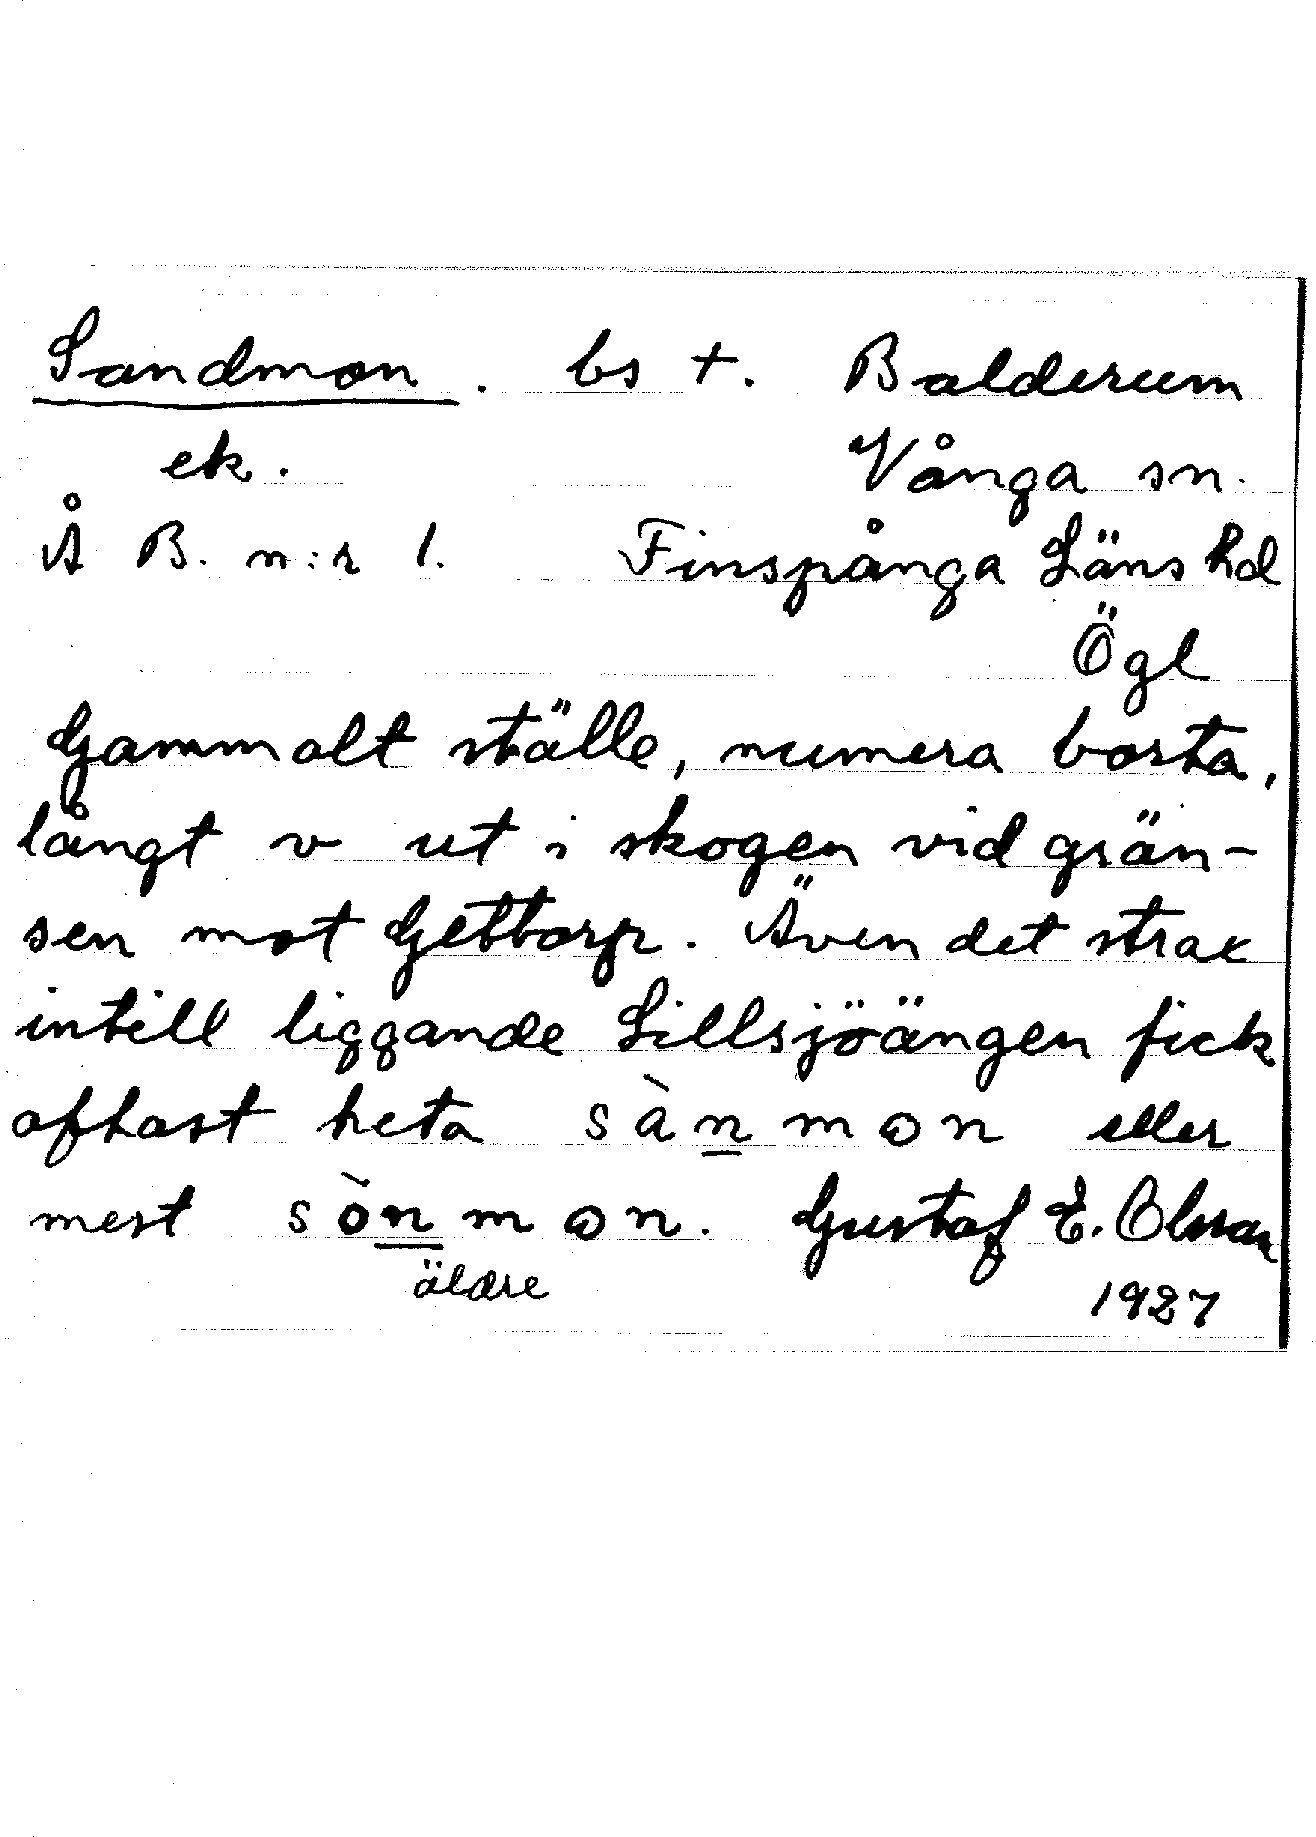 Sandmon. bs +. Balderum
ek. Vånga sn.
Å B. n:r 1. Finspånga Läns hd
Ögl
Gammalt ställe, numera borta,
långt v ut i skogen vid grän-
sen mot Gettorp. Även det strax
intill liggande Lillsjöängen fick
oftast heta sànmon eller
mest sònmon. Gustaf E. Olsson
äldre
1927